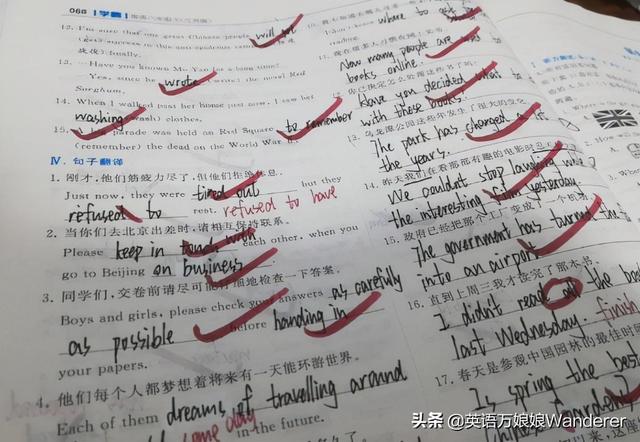 068 学霸
12. I'm sure that our great Chinese people will get
(get) success in this anti-epidemic
战役) finally.
13. —Have you known Mo Yan for a long time?
Yes, since he wrote (write) the novel Red
Sorghum.
14. When I walked past her house just now, I saw her
washing (wash) clothes.
15. A big parade was held on Red Square to remember
(remember) the dead on the World War II.
Ⅳ. 句子翻译
1. 刚才,他们筋疲力尽了,但他们拒绝休息.
Just now, they were tired out but they
refused to rest. refused to have
2. 当你们去北京出差时,请相互保持联系.
Please keep in touch with each other, when you
go to Beijing on business.
3. 同学们,交卷前请尽可能仔细地检查一下答案.
Boys and girls, please check your answers as carefully
as possible before handing in
your papers.
4. 他们每个人都梦想着将来有一天能环游世界.
Each of them dreams of travelling around
some day in the future.
where to get
reading.
How many people are
books online.
Have you decided what to
with those books?
The park has changed a lot
the years.
14. 昨天我们在看那部有趣的电影时忍
We couldn't stop laughing
the interesting film yesterday
15. 政府已经把那个工厂变成了一个机场
The government has turned the
into an airport
16. 直到上周三我才读完了那本书.
I didn't read all the book
last Wednesday. finish
17. 春天是参观中国园林的最佳时
Is spring the best
Chinese garden?
头条 @英语万娘娘Wanderer